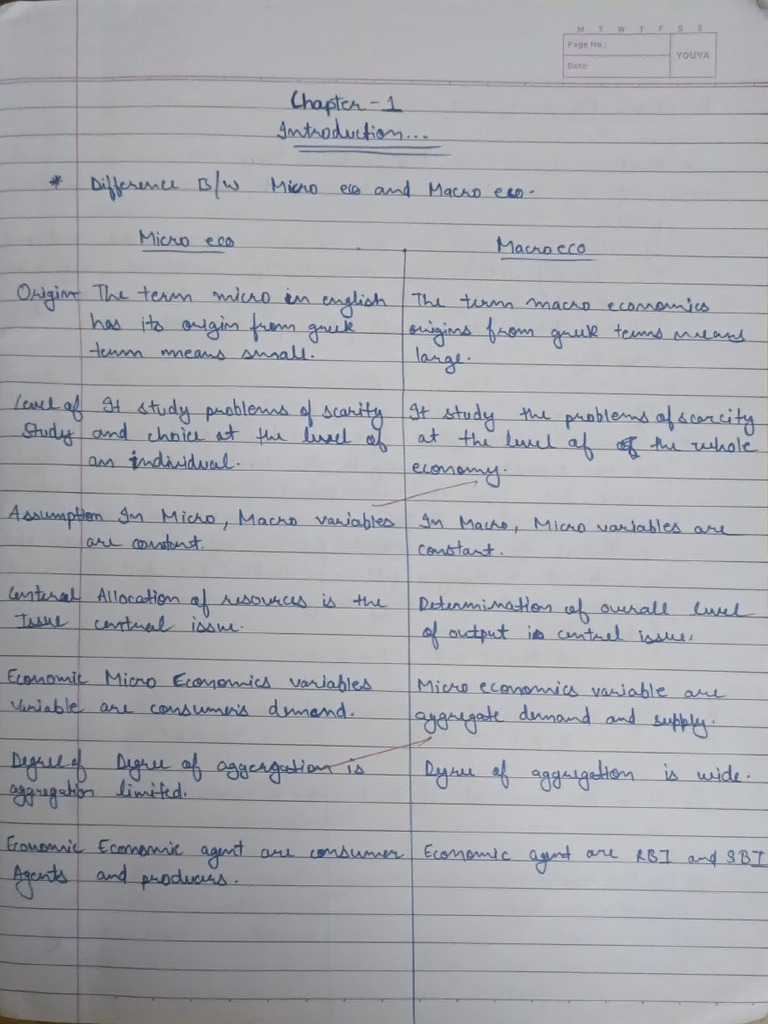 M T W T F S S
Page No.:
YOUVA
Date:
Chapter - 1
Introduction...
* Difference B/W Micro eco and Macro eco.
Micro eco
Macro eco
Origin The term micro in english
has its origin from greek
term means small.
The term macro economics
origins from greek terms means
large.
Level of It study problems of scarity
Study and choice at the level of
an individual.
It study the problems of scarcity
at the level of of the whole
economy.
Assumption In Micro, Macro variables
are constant.
In Macro, Micro variables are
constant.
Centeral Allocation of resources is the
Issue centural issue.
Determination of overall level
of output is centrel issue.
Economic Micro Economics variables
Variable are consumer's demand.
Micro economics variable are
aggregate demand and supply.
Degree of Degree of aggergation is
aggregation limited.
Degree of aggregation is wide.
Economic Economic agent are consumer
Agents and producers.
Economic agent are RBI and SBI